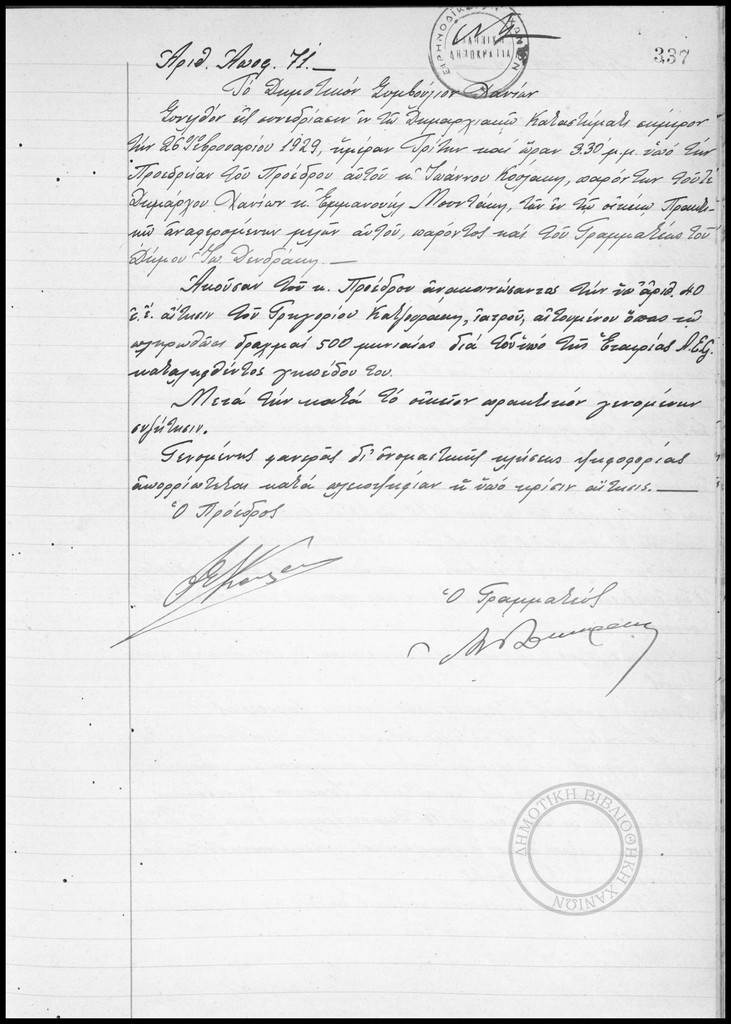 337
ΕΙΡΗΝΟΔΙΚΕΙΟΝ ΧΑΝΙΩΝ
ΕΛΛΗΝΙΚΗ
ΔΗΜΟΚΡΑΤΙΑ
Ἀριθ. Ἀποφ. 71.—
Τό Δημοτικόν Συμβούλιον Χανίων
Συνελθόν εἰς συνεδρίασιν ἐν τῷ Δημαρχιακῷ Καταστήματι σήμερον
τήν 26 Φεβρουαρίου 1929, ἡμέραν Τρίτην καί ὥραν 3.30 μ.μ. ὑπό τήν
Προεδρείαν τοῦ Προέδρου αὐτοῦ κ. Ἰωάννου, παρόντων τοῦ τε
Δημάρχου Χανίων κ. Ἐμμανουήλ Μουντάκη, τῶν ἐν τῷ οἰκείῳ Πρακτι-
κῷ ἀναφερομένων μελῶν αὐτοῦ, παρόντος καί τοῦ Γραμματέως τοῦ
Δήμου Ἰω. Δενδράκη.—
Ἀκοῦσαν τοῦ κ. Προέδρου ἀνακοινώσαντος τήν ὑπ' ἀριθ. 40
ἐ.ἔ. αἴτησιν τοῦ Γρηγορίου Κατζουράκη, ἰατροῦ, αἰτουμένου ὅπως τῷ
πληρωθῶσι δραχμαί 500 μηνιαίως διά τοῦ ὑπό τῆς Ἑταιρίας
καταληφθέντος γηπέδου του.
Μετά τήν κατά τό οἰκεῖον πρακτικόν γενομένην
συζήτησιν.
Γενομένης φανερᾶς δι' ὀνομαστικῆς κλήσεως ψηφοφορίας
ἀπορρίπτεται κατά πλειοψηφίαν ἡ ὑπό κρίσιν αἴτησις.—
Ὁ Πρόεδρος
Ὁ Γραμματεύς
ΔΗΜΟΤΙΚΗ ΒΙΒΛΙΟΘΗΚΗ ΧΑΝΙΩΝ